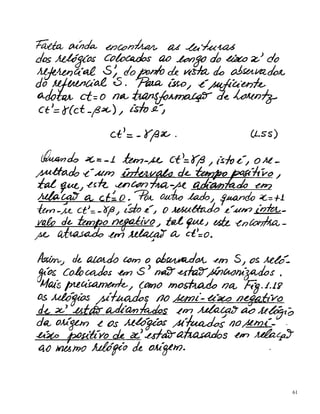 Falta ainda encontrar as leituras
dos relógios colocados ao longo do eixo x' do
referencial S', do ponto de vista do observador
do referencial S. Para isso, é suficiente
adotar ct=0 na transformação de Lorentz
ct'=γ(ct-βx), isto é,
ct'=-γβx. (1.55)
Quando x=-1 tem-se ct'=γβ, isto é, o re-
sultado é um intervalo de tempo positivo,
tal que, este encontra-se adiantado em
relação a ct=0. Por outro lado, quando x=+1
tem-se ct'=-γβ, isto é, o resultado é um inter-
valo de tempo negativo, tal que, este encontra-
se atrasado em relação a ct'=0.
Assim, de acordo com o observador em S, os reló-
gios colocados em S' não estão sincronizados.
Mais precisamente, como mostrado na Fig.1.18
os relógios situados no semi-eixo negativo
de x' estão adiantados em relação ao relógio
da origem e os relógios situados no semi-
eixo positivo de x' estão atrasados em relação
ao mesmo relógio de origem.
61